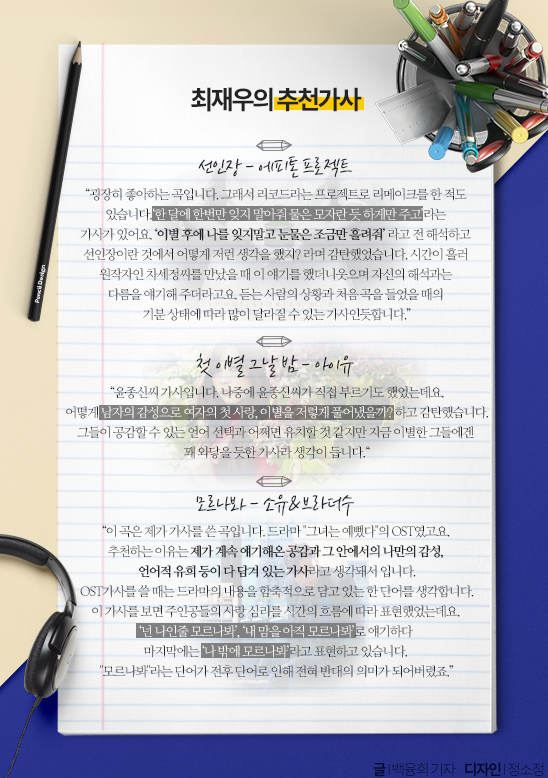 최재우의 추천가사
선인장 - 에피톤 프로젝트
“굉장히 좋아하는 곡입니다. 그래서 리코드라는 프로젝트로 리메이크를 한 적도
있습니다. '한 달에 한번만 잊지 말아줘 물은 모자란 듯 하게만 주고'라는
가사가 있어요. '이별 후에 나를 잊지말고 눈물은 조금만 흘려줘' 라고 전 해석하고
선인장이란 것에서 어떻게 저런 생각을 했지? 라며 감탄했었습니다. 시간이 흘러
원작자인 차세정씨를 만났을 때 이 얘기를 했더니 웃으며 자신의 해석과는
다름을 얘기해 주더라고요. 듣는 사람의 상황과 처음 곡을 들었을 때의
기분 상태에 따라 많이 달라질 수 있는 가사인듯합니다.”
첫 이별 그날 밤 - 아이유
“윤종신씨 가사입니다. 나중에 윤종신씨가 직접 부르기도 했었는데요.
어떻게 남자의 감성으로 여자의 첫 사랑, 이별을 저렇게 풀어냈을까? 하고 감탄했습니다.
그들이 공감할 수 있는 언어 선택과 어쩌면 유치할 것 같지만 지금 이별한 그들에겐
꽤 와닿을 듯한 가사라 생각이 듭니다.“
모르나봐 - 소유&브라더수
“이 곡은 제가 가사를 쓴 곡입니다. 드라마 "그녀는 예뻤다"의 OST였고요.
추천하는 이유는 제가 계속 얘기해온 공감과 그 안에서의 나만의 감성,
언어적 유희 등이 다 담겨 있는 가사라고 생각돼서 입니다.
OST가사를 쓸 때는 드라마의 내용을 함축적으로 담고 있는 한 단어를 생각합니다.
이 가사를 보면 주인공들의 사랑 심리를 시간의 흐름에 따라 표현했었는데요.
'넌 나인줄 모르나봐', '내 맘을 아직 모르나봐'로 얘기하다
마지막에는 '나 밖에 모르나봐'라고 표현하고 있습니다.
"모르나봐"라는 단어가 전후 단어로 인해 전혀 반대의 의미가 되어버렸죠.”
Pencil Design
글 | 백융희 기자 디자인 | 정소정